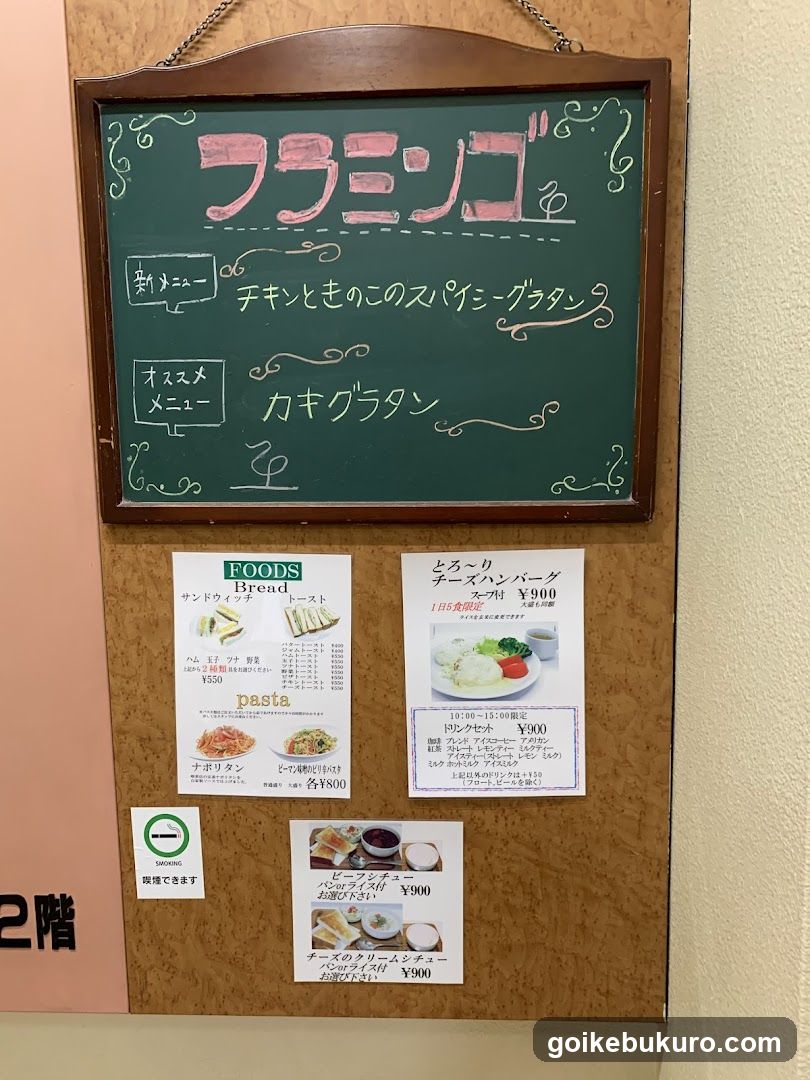 フラミンゴ
新メニュー
チキンときのこのスパイシーグラタン
オススメ
メニュー
カキグラタン
FOODS
Bread
サンドウィッチ
トースト
ハム 玉子 ツナ 野菜
上記から2種類具をお選びください
¥550
バタートースト ¥400
ジャムトースト ¥400
ハムトースト ¥550
玉子トースト ¥550
ツナトースト ¥550
野菜トースト ¥550
ピザトースト ¥550
チキントースト ¥550
チーズトースト ¥550
pasta
ナポリタン
ピーマン味噌のピリ辛パスタ
普通盛り 大盛り 各¥800
とろ～り
チーズハンバーグ
スープ付 ¥900
1日5食限定
大盛も同額
ライスを玄米に変更できます
10:00～15:00限定
ドリンクセット ¥900
珈琲 ブレンド アイスコーヒー アメリカン
紅茶 ストレート レモンティー ミルクティー
アイスティー(ストレート レモン ミルク)
ミルク ホットミルク アイスミルク
上記以外のドリンクは+¥50
(フロート、ビールを除く)
SMOKING
喫煙できます
2階
ビーフシチュー
パンorライス付
お選び下さい
¥900
チーズのクリームシチュー
パンorライス付
お選び下さい
¥900
goikebukuro.com